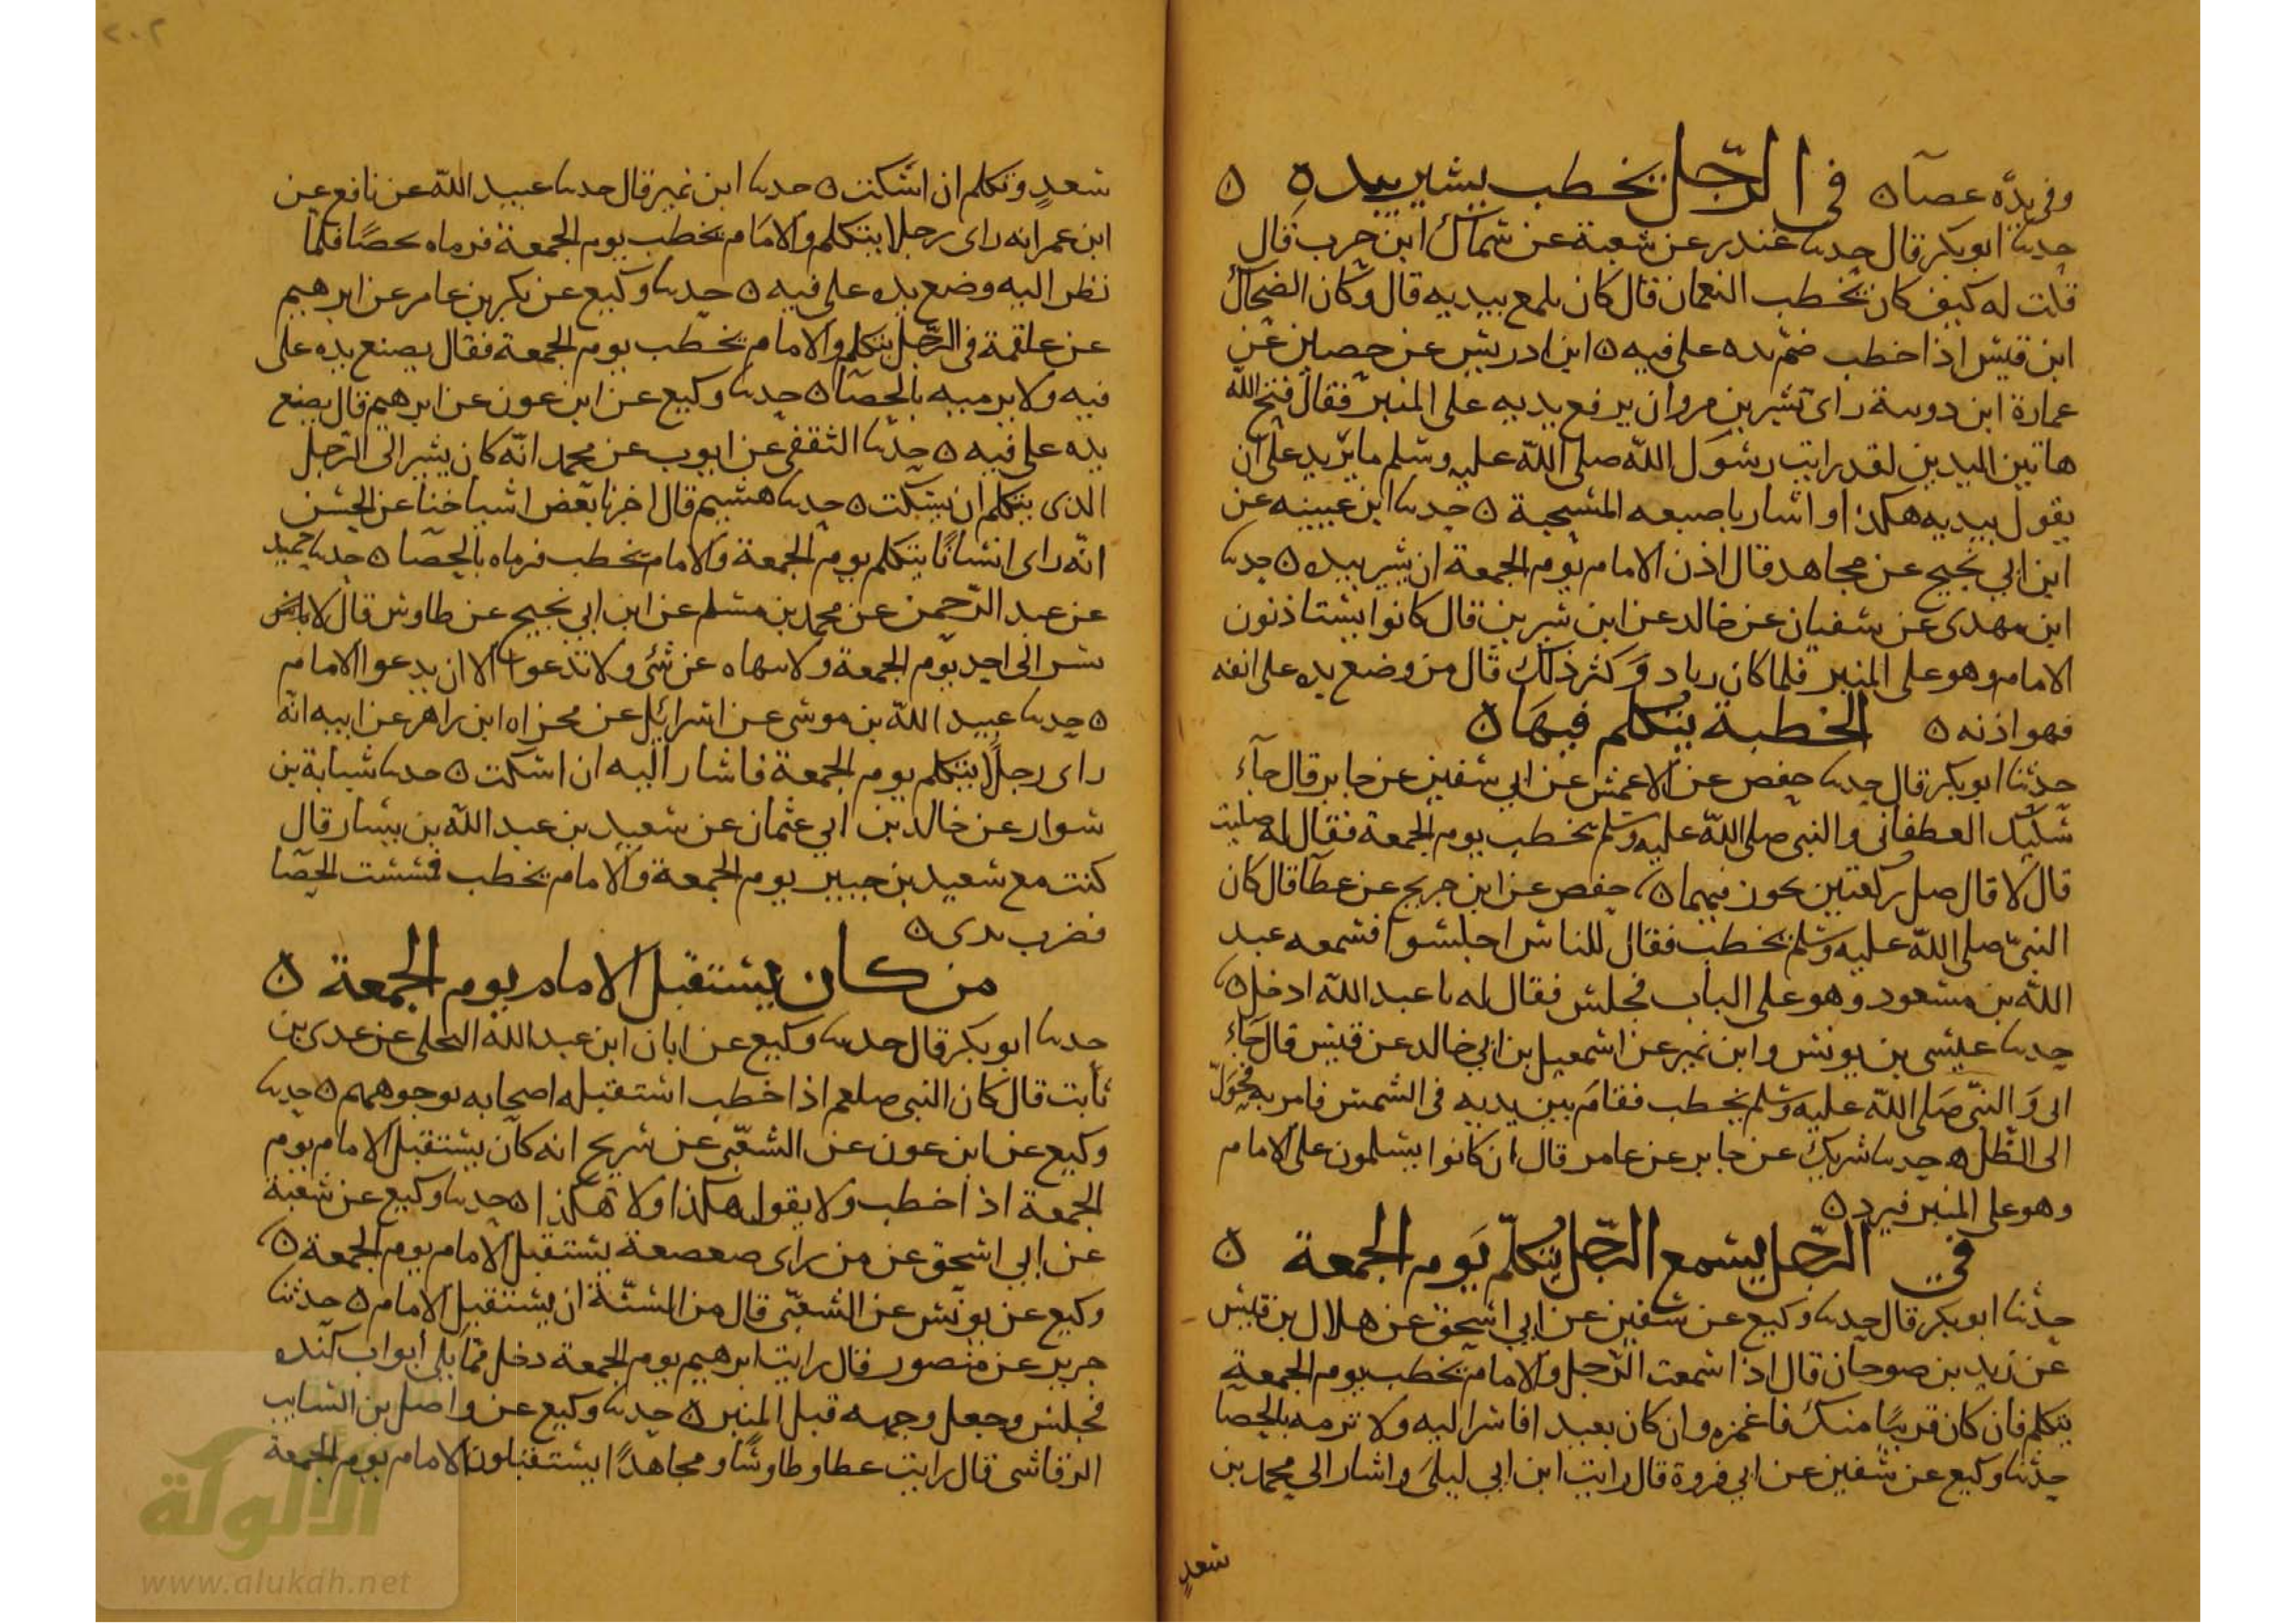 وفي يده عصا ه في الرجل يخطب يشير بيده ه
حدثنا ابو بكر قال حدثنا غندر عن شعبة عن سماك ابن حرب قال
قلت له كيف كان يخطب النعمان قال كان يلمع بيديه قال وكان الضحاك
ابن قيس اذا خطب ضم يده على فيه ه ابن ادريس عن حصين عن
عمارة ابن رويبة راى بشر بن مروان يرفع يديه على المنبر فقال قبح الله
هاتين اليدين لقد رايت رسول الله صلى الله عليه وسلم ما يزيد على ان
يقول بيديه هكذا واشار باصبعه المسبحة ه حدثنا ابن عيينه عن
ابن ابي نجيح عن مجاهد قال اذن الامام يوم الجمعة ان يشير بيده ه حدثنا
ابن مهدى عن سفيان عن خالد عن ابن سيرين قال كانوا يستاذنون
الامام وهو على المنبر فلما كان زياد وكثر ذلك قال من وضع يده على انفه
فهو اذنه ه الخطبة يتكلم فيها ه
حدثنا ابو بكر قال حدثنا حفص عن الاعمش عن ابي سفين عن جابر قال جآء
سليك الغطفاني والنبي صلى الله عليه وسلم يخطب يوم الجمعة فقال له صليت
قال لا قال صل ركعتين تجوز فيهما ه حفص عن ابن جريج عن عطآ قال كان
النبي صلى الله عليه وسلم يخطب فقال للناس اجلسوا فسمعه عبد
الله بن مسعود وهو على الباب فجلس فقال له يا عبد الله ادخل ه
حدثنا عيسى بن يونس وابن نمير عن اسمعيل بن ابي خالد عن قيس قال جآء
ابى والنبي صلى الله عليه وسلم يخطب فقام بين يديه في الشمس فامر به فحول
الى الظل ه حدثنا شريك عن جابر عن عامر قال ان كانوا يسلمون على الامام
وهو على المنبر فيرد ه
في الرجل يسمع الرجل يتكلم يوم الجمعة ه
حدثنا ابو بكر قال حدثنا وكيع عن سفين عن ابي اسحق عن هلال بن قيس
عن زيد بن صوحان قال اذا سمعت الرجل والامام يخطب يوم الجمعة
يتكلم فان كان قريبا منك فاغمزه وان كان بعيدا فاشر اليه ولا ترمه بالحصا
حدثنا وكيع عن سفين عن ابي فروة قال رايت ابن ابي ليلى واشار الى محمد بن
سعد
سعد وتكلم ان اسكت ه حدثنا ابن نمير قال حدثنا عبيد الله عن نافع عن
ابن عمر انه راى رجلا يتكلم والامام يخطب يوم الجمعة فرماه بحصا فلما
نظر اليه وضع يده على فيه ه حدثنا وكيع عن بكر بن عامر عن ابرهيم
عن علقمة في الرجل يتكلم والامام يخطب يوم الجمعة فقال يضع يده على
فيه ولا يرميه بالحصا ه حدثنا وكيع عن ابن عون عن ابرهيم قال يضع
يده على فيه ه حدثنا الثقفي عن ايوب عن محمد انه كان يشير الى الرجل
الذى يتكلم ان يسكت ه حدثنا هشيم قال اخبرنا بعض اشياخنا عن الحسن
انه راى انسانا يتكلم يوم الجمعة والامام يخطب فرماه بالحصا ه حدثنا حميد
عن عبد الرحمن عن محمد بن مسلم عن ابن ابي نجيح عن طاوس قال لا
يشير الى احد يوم الجمعة ولا ينهاه عن شئ ولا تدعوا الا ان يدعوا الامام
ه حدثنا عبيد الله بن موسى عن اسرائيل عن مجزاه ابن زاهر عن ابيه انه
راى رجلا يتكلم يوم الجمعة فاشار اليه ان اسكت ه حدثنا شبابة بن
سوار عن خالد بن ابي عثمان عن سعيد بن عبد الله بن يسار قال
كنت مع سعيد بن جبير يوم الجمعة والامام يخطب فمسست الحصا
فضرب يدى ه
من كان يستقبل الامام يوم الجمعة ه
حدثنا ابو بكر قال حدثنا وكيع عن ابان ابن عبد الله البجلى عن عدى بن
ثابت قال كان النبي صلعم اذا خطب استقبله اصحابه بوجوههم ه حدثنا
وكيع عن ابن عون عن الشعبي عن شريح انه كان يستقبل الامام يوم
الجمعة اذا خطب ولا يقول هكذا ولا هكذا ه حدثنا وكيع عن شعبة
عن ابي اسحق عن من راى صعصعة يستقبل الامام يوم الجمعة ه
وكيع عن يونس عن الشعبي قال من السنة ان يستقبل الامام ه حدثنا
جرير عن منصور قال رايت ابرهيم يوم الجمعة دخل مما يلي ابواب كنده
فجلس وجعل وجهه قبل المنبر ه حدثنا وكيع عن واصل بن السايب
الرقاشى قال رايت عطا وطاوسا ومجاهدا يستقبلون الامام يوم الجمعة
٢٠٢
الألوكة
www.alukah.net